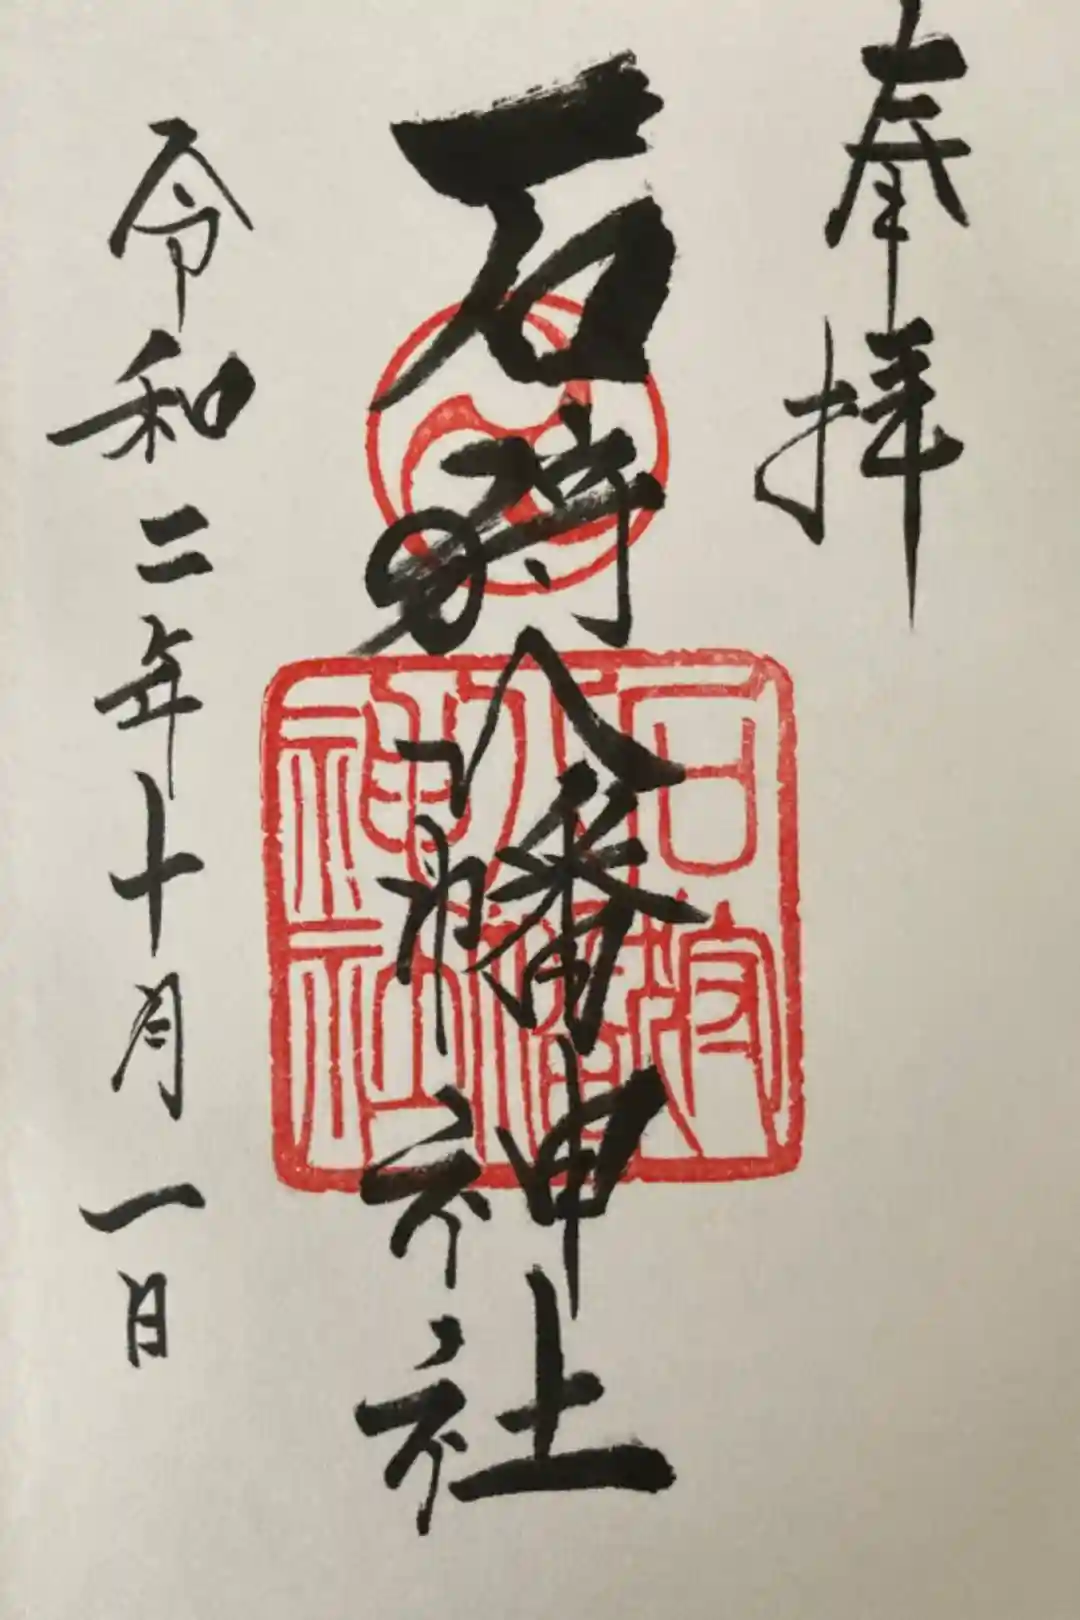 奉拝
石狩八幡神社
石狩
八幡
神社
令和二年十月一日